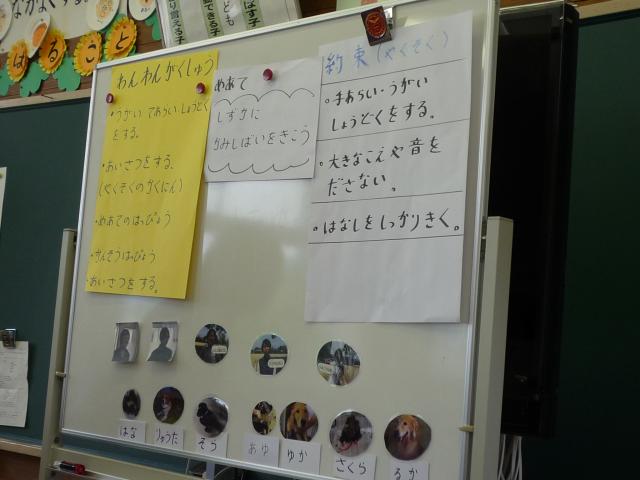 はるこ と
わんわんがくしゅう
・うがい てあらい しょうどく
をする。
・あいさつをする。
(やくそくのかくにん)
・めあてのはっぴょう
・かんそうはっぴょう
・あいさつをする。
めあて
しずかに
かみしばいをきこう
約束(やくそく)
・手あらい・うがい
しょうどくをする。
・大きなこえや音を
ださない。
・はなしをしっかりきく。
はな
りょうた
そう
あゆ
ゆか
さくら
るか